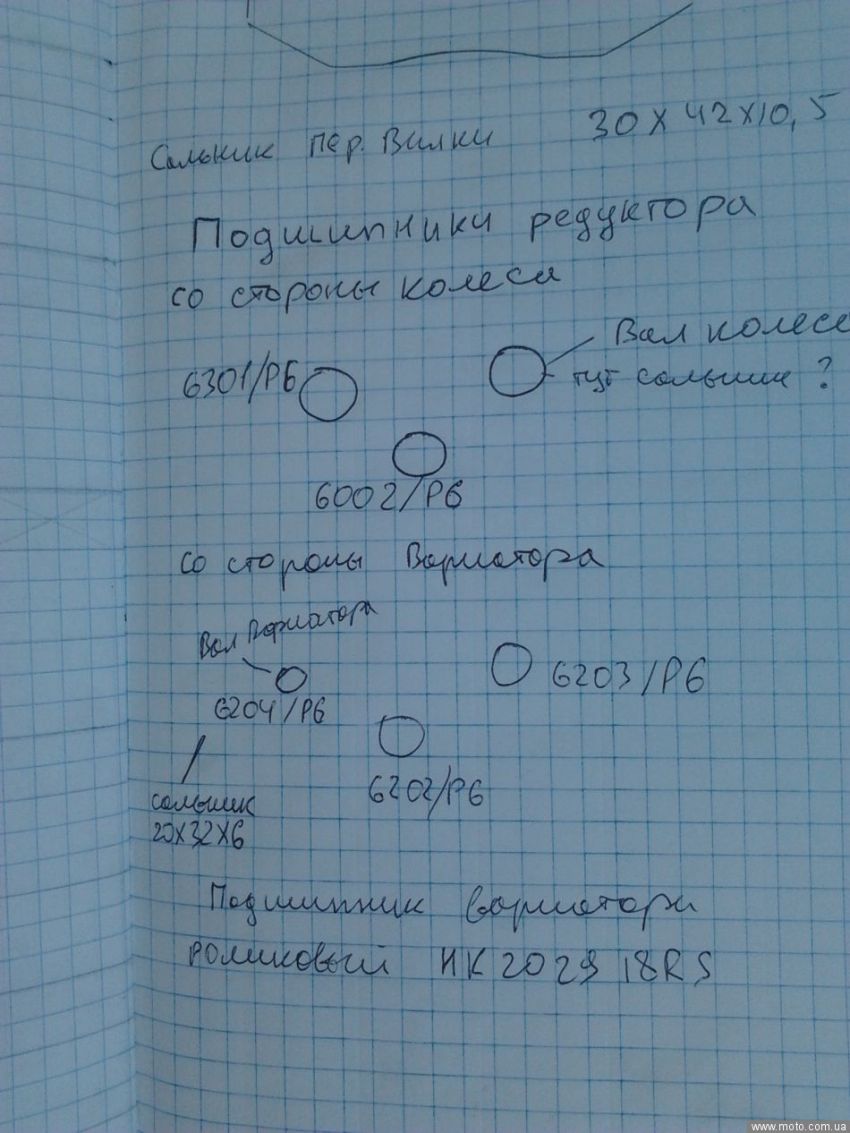 Сальник пер. Вилки 30х42х10,5
Подшипники редуктора
со стороны колеса
Вал колеса
6301/P6
тут сальник ?
6002/P6
со стороны Вариатора
Вал Вариатора
6203/P6
6204/P6
6202/P6
сальник
20х32х6
Подшипник вариатора
роликовый НК 2029 18RS
www.moto.com.ua